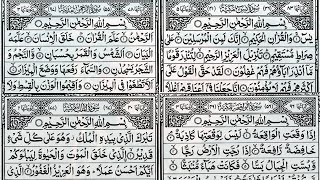 بِسْمِ اللهِ الرَّحْمٰنِ الرَّحِيْمِ
يٰسٓ وَالْقُرْاٰنِ الْحَكِيْمِ اِنَّكَ لَمِنَ الْمُرْسَلِيْنَ عَلٰى
صِرَاطٍ مُّسْتَقِيْمٍ تَنْزِيْلَ الْعَزِيْزِ الرَّحِيْمِ لِتُنْذِرَ قَوْمًا
مَّآ اُنْذِرَ اٰبَآؤُهُمْ فَهُمْ غٰفِلُوْنَ لَقَدْ حَقَّ الْقَوْلُ
بِسْمِ اللهِ الرَّحْمٰنِ الرَّحِيْمِ
اَلرَّحْمٰنُ عَلَّمَ الْقُرْاٰنَ خَلَقَ الْاِنْسَانَ عَلَّمَهُ
الْبَيَانَ اَلشَّمْسُ وَالْقَمَرُ بِحُسْبَانٍ وَّالنَّجْمُ وَ
الشَّجَرُ يَسْجُدٰنِ وَالسَّمَآءَ رَفَعَهَا وَوَضَعَ الْمِيْزَانَ
اَلَّا تَطْغَوْا فِى الْمِيْزَانِ وَاَقِيْمُوا الْوَزْنَ بِالْقِسْطِ وَلَا
بِسْمِ اللهِ الرَّحْمٰنِ الرَّحِيْمِ
اِذَا وَقَعَتِ الْوَاقِعَةُ لَيْسَ لِوَقْعَتِهَا كَاذِبَةٌ
خَافِضَةٌ رَّافِعَةٌ اِذَا رُجَّتِ الْاَرْضُ رَجًّا
وَّبُسَّتِ الْجِبَالُ بَسًّا فَكَانَتْ هَبَآءً مُّنْۢبَثًّا
بِسْمِ اللهِ الرَّحْمٰنِ الرَّحِيْمِ
تَبٰرَكَ الَّذِيْ بِيَدِهِ الْمُلْكُ وَهُوَ عَلٰى كُلِّ شَيْءٍ
قَدِيْرٌ الَّذِيْ خَلَقَ الْمَوْتَ وَالْحَيٰوةَ لِيَبْلُوَكُمْ
اَيُّكُمْ اَحْسَنُ عَمَلًا وَهُوَ الْعَزِيْزُ الْغَفُوْرُ